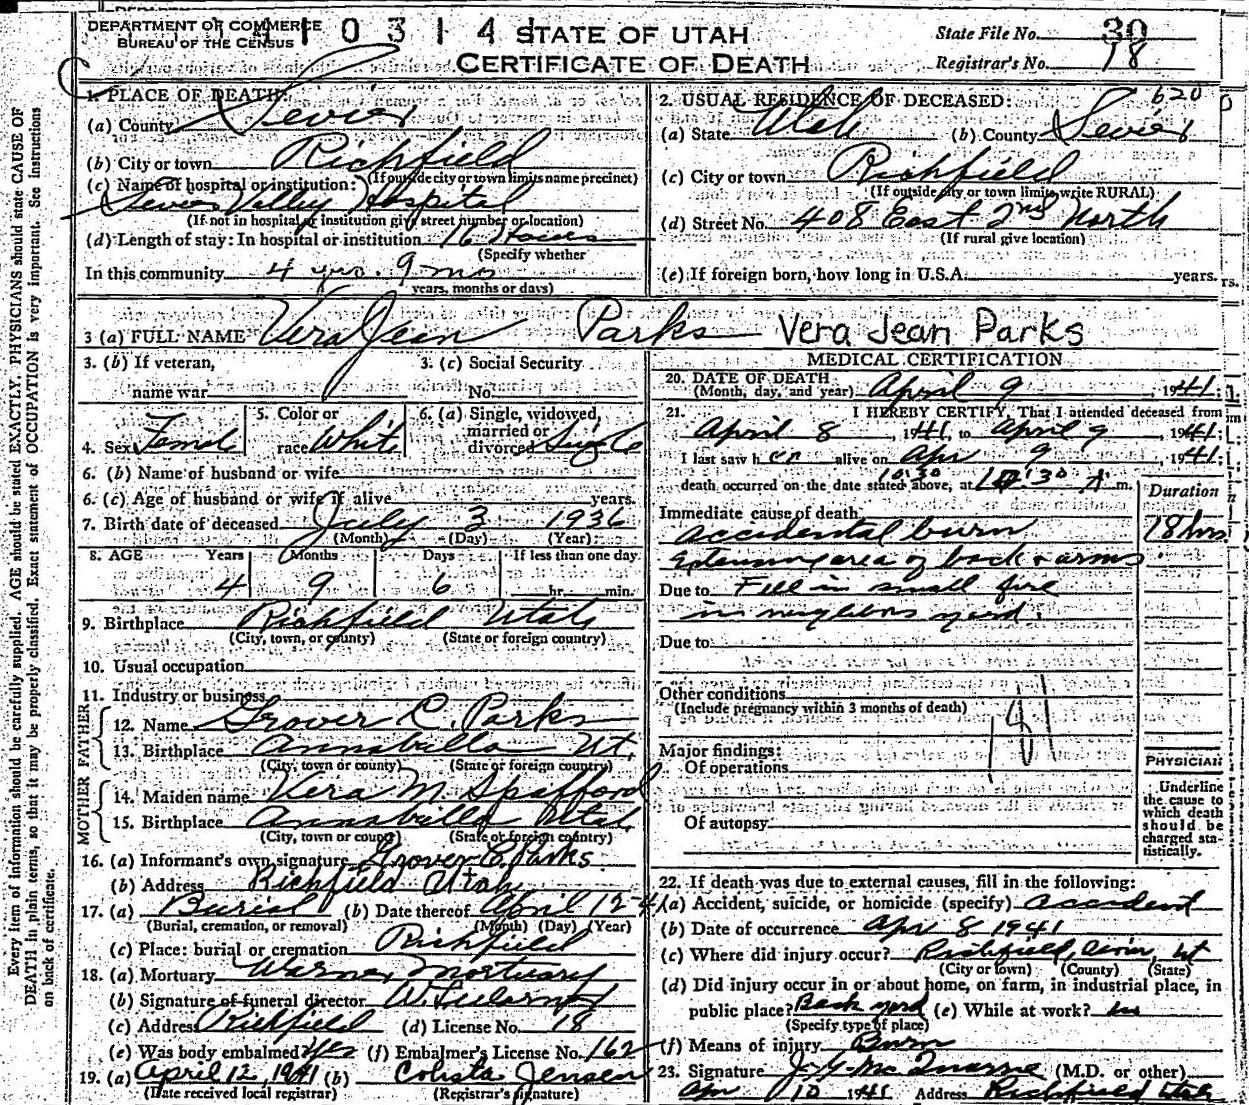 DEPARTMENT OF COMMERCE
BUREAU OF THE CENSUS
0 3 1 4
STATE OF UTAH
CERTIFICATE OF DEATH
State File No. 30
Registrar's No. 18
620
Every item of information should be carefully supplied. AGE should be stated EXACTLY. PHYSICIANS should state CAUSE OF
DEATH in plain terms, so that it may be properly classified. Exact statement of OCCUPATION is very important. See instructions
on back of certificate.
1. PLACE OF DEATH:
(a) County Sevier
(b) City or town Richfield
(If outside city or town limits name precinct)
(c) Name of hospital or institution:
Sevier Valley Hospital
(If not in hospital or institution give street number or location)
(d) Length of stay: In hospital or institution 16 Hours
(Specify whether
In this community 4 yrs. 9 mos
years, months or days)
2. USUAL RESIDENCE OF DECEASED:
(a) State Utah (b) County Sevier
(c) City or town Richfield
(If outside city or town limits write RURAL)
(d) Street No. 408 East 2nd North
(If rural give location)
(e) If foreign born, how long in U.S.A. years.
3 (a) FULL NAME Vera Jean Parks Vera Jean Parks
3. (b) If veteran,
name war
3. (c) Social Security
No.
4. Sex Female
5. Color or
race White
6. (a) Single, widowed,
married or
divorced Single
6. (b) Name of husband or wife
6. (c) Age of husband or wife if alive years.
7. Birth date of deceased July 3 1936
(Month) (Day) (Year)
8. AGE Years Months Days If less than one day
4 9 6 hr. min.
9. Birthplace Richfield Utah
(City, town, or county) (State or foreign country)
10. Usual occupation
11. Industry or business
FATHER
12. Name Grover C. Parks
13. Birthplace Annabella Ut.
(City, town or county) (State or foreign country)
MOTHER
14. Maiden name Vera M Spafford
15. Birthplace Annabella Utah
(City, town or county) (State or foreign country)
16. (a) Informant's own signature Grover C. Parks
(b) Address Richfield Utah
17. (a) Burial (b) Date thereof April 12-41
(Burial, cremation, or removal) (Month) (Day) (Year)
(c) Place: burial or cremation Richfield
18. (a) Mortuary Warner Mortuary
(b) Signature of funeral director
(c) Address Richfield (d) License No. 18
(e) Was body embalmed? Yes (f) Embalmer's License No. 162
19. (a) April 12, 1941 (b) Colista Jensen
(Date received local registrar) (Registrar's signature)
MEDICAL CERTIFICATION
20. DATE OF DEATH
(Month, day, and year) April 9, 1941
21. I HEREBY CERTIFY, That I attended deceased from
April 8, 1941, to April 9, 1941.
I last saw her alive on Apr 9, 1941.
10:30
death occurred on the date stated above, at 10:30 A m.
Duration
Immediate cause of death
accidental burn 18 hrs
extensive area of back & arms
Due to Fell in small fire
in neighbors yard.
Due to
Other conditions
(Include pregnancy within 3 months of death)
181
Major findings:
Of operations
Of autopsy
PHYSICIAN
Underline
the cause to
which death
should be
charged sta-
tistically.
22. If death was due to external causes, fill in the following:
(a) Accident, suicide, or homicide (specify) accident
(b) Date of occurrence Apr 8 1941
(c) Where did injury occur? Richfield, Sevier, Ut
(City or town) (County) (State)
(d) Did injury occur in or about home, on farm, in industrial place, in
public place? Back yard (e) While at work? no
(Specify type of place)
(f) Means of injury Burn
23. Signature J. G. McQuarrie (M.D. or other)
Apr 10 1941 Address Richfield Utah